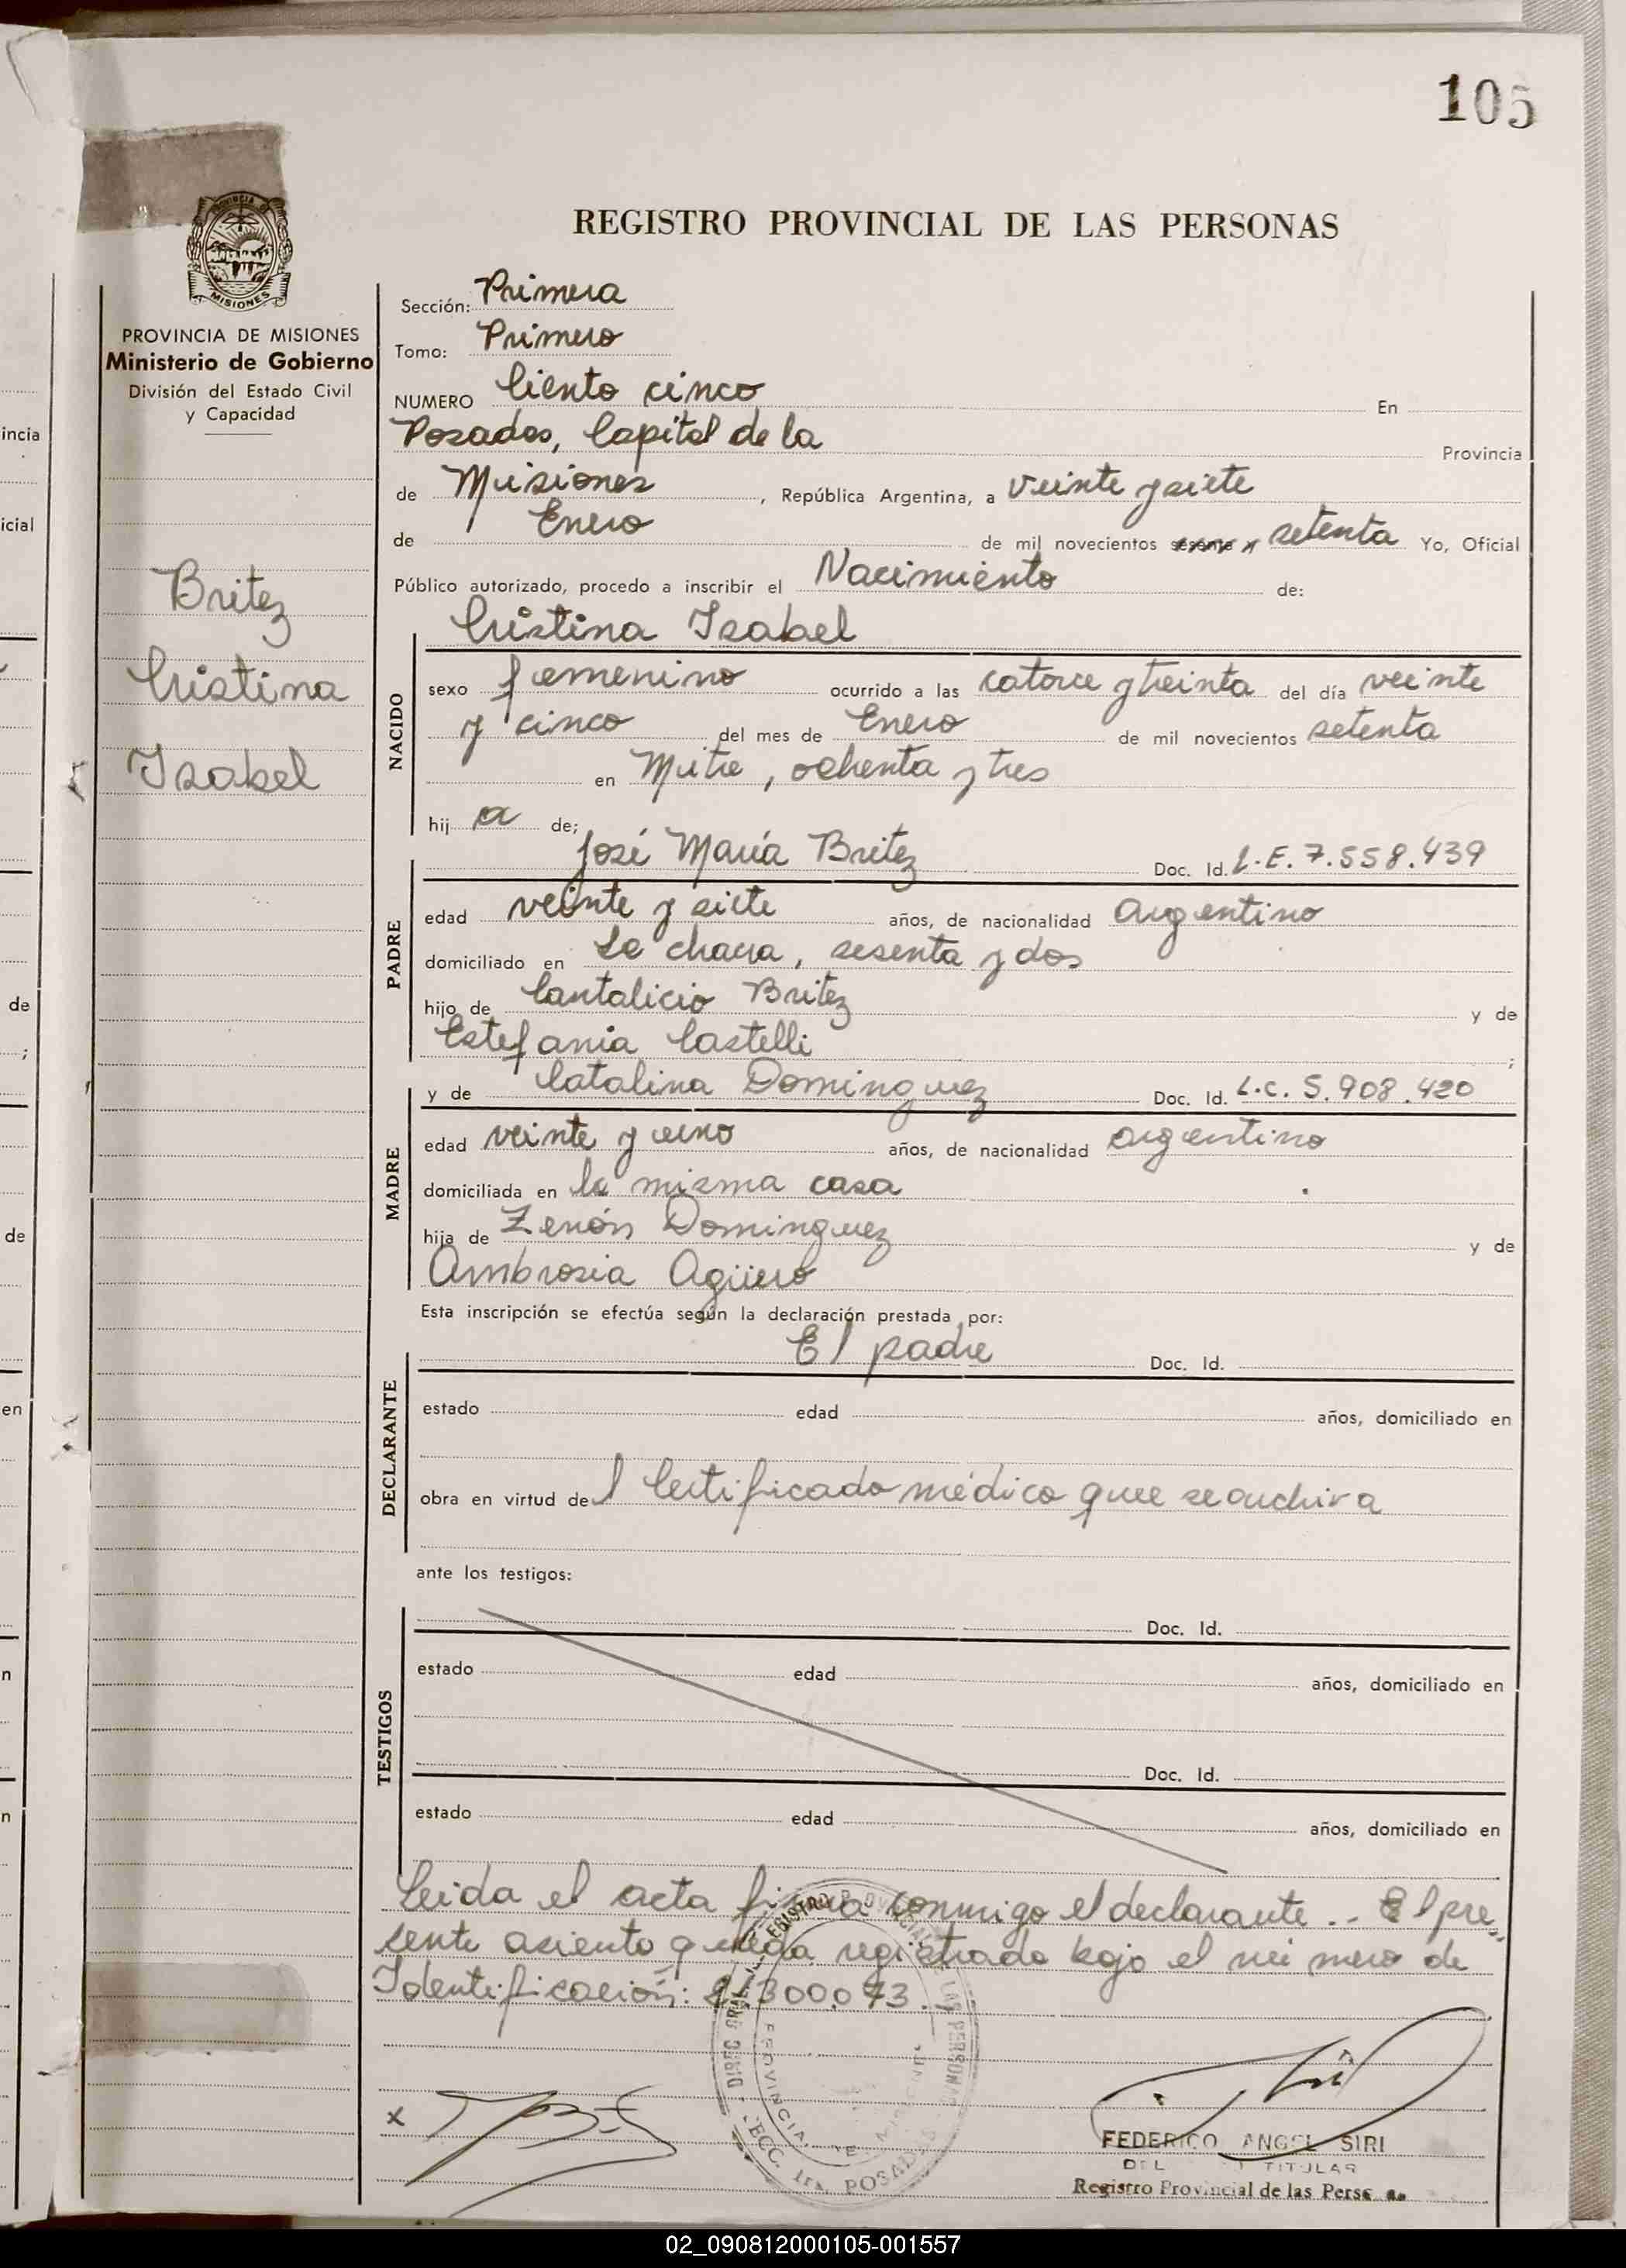 105
PROVINCIA DE MISIONES
MISIONES
PROVINCIA DE MISIONES
Ministerio de Gobierno
División del Estado Civil
y Capacidad
Britez
Cristina
Isabel
REGISTRO PROVINCIAL DE LAS PERSONAS
Sección: Primera
Tomo: Primero
NUMERO Ciento cinco En
Posadas, Capital de la Provincia
de Misiones, República Argentina, a veinte y siete
de Enero de mil novecientos sesenta y setenta Yo, Oficial
Público autorizado, procedo a inscribir el Nacimiento de:
Cristina Isabel
NACIDO
sexo femenino ocurrido a las catorce y treinta del día veinte
y cinco del mes de Enero de mil novecientos setenta
en Mitre, ochenta y tres
hij a de;
José María Britez Doc. Id. L.E. 7.558.439
PADRE
edad veinte y siete años, de nacionalidad argentino
domiciliado en La chacra, sesenta y dos
hijo de Cantalicio Britez y de
Estefania Castelli ;
y de Catalina Dominguez Doc. Id. L.C. 5.908.420
MADRE
edad veinte y uno años, de nacionalidad argentino
domiciliada en la misma casa
hija de Zenón Dominguez y de
Ambrosia Agüero
Esta inscripción se efectúa según la declaración prestada por:
El padre Doc. Id.
DECLARANTE
estado edad años, domiciliado en
obra en virtud del Certificado médico que se archiva
ante los testigos:
Doc. Id.
TESTIGOS
estado edad años, domiciliado en
Doc. Id.
estado edad años, domiciliado en
Leida el acta firma conmigo el declarante.. El pre
sente asiento queda registrado bajo el número de
Identificación: 21300.073.
x
FEDERICO ANGEL SIRI
TITULAR
Registro Provincial de las Perso
02_090812000105-001557